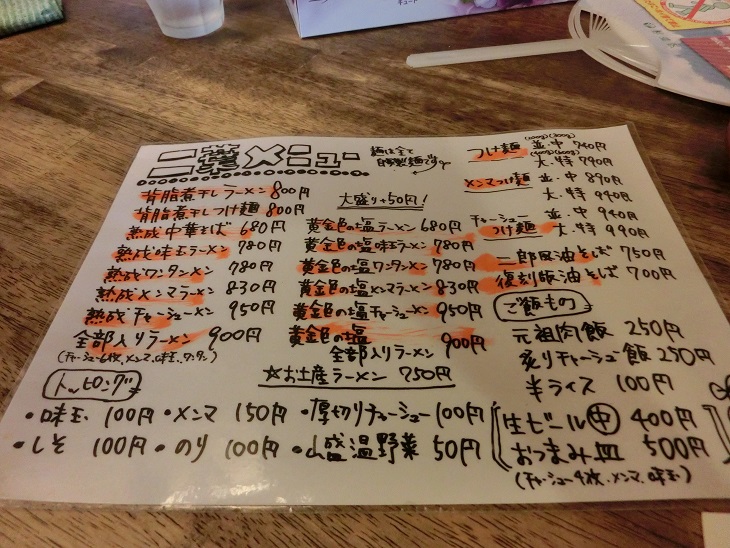 二葉メニュー
麺は全て
自家製麺です。
背脂煮干しラーメン 800円
背脂煮干しつけ麺 800円
熟成中華そば 680円
熟成味玉ラーメン 780円
熟成ワンタンメン 780円
熟成メンマラーメン 830円
熟成チャーシューメン 950円
全部入りラーメン 900円
(チャーシュー6枚、メンマ、味玉、ワンタン)
大盛り+50円!
黄金色の塩ラーメン 680円
黄金色の塩味玉ラーメン 780円
黄金色の塩ワンタンメン 780円
黄金色の塩メンマラーメン 830円
黄金色の塩チャーシューメン 950円
黄金色の塩
全部入りラーメン 900円
☆お土産ラーメン 750円
(200g)(300g)
つけ麺 並・中 740円
(400g)(600g)
大・特 790円
メンマつけ麺 並・中 890円
大・特 940円
チャーシュー 並・中 940円
つけ麺 大・特 990円
二郎風油そば 750円
復刻版油そば 700円
ご飯もの
元祖肉飯 250円
炙りチャーシュー飯 250円
半ライス 100円
生ビール 中 400円
おつまみ皿 500円
(チャーシュー4枚、メンマ、味玉)
トッピング
・味玉 100円 ・メンマ 150円 ・厚切りチャーシュー 100円
・しそ 100円 ・のり 100円 ・山盛温野菜 50円